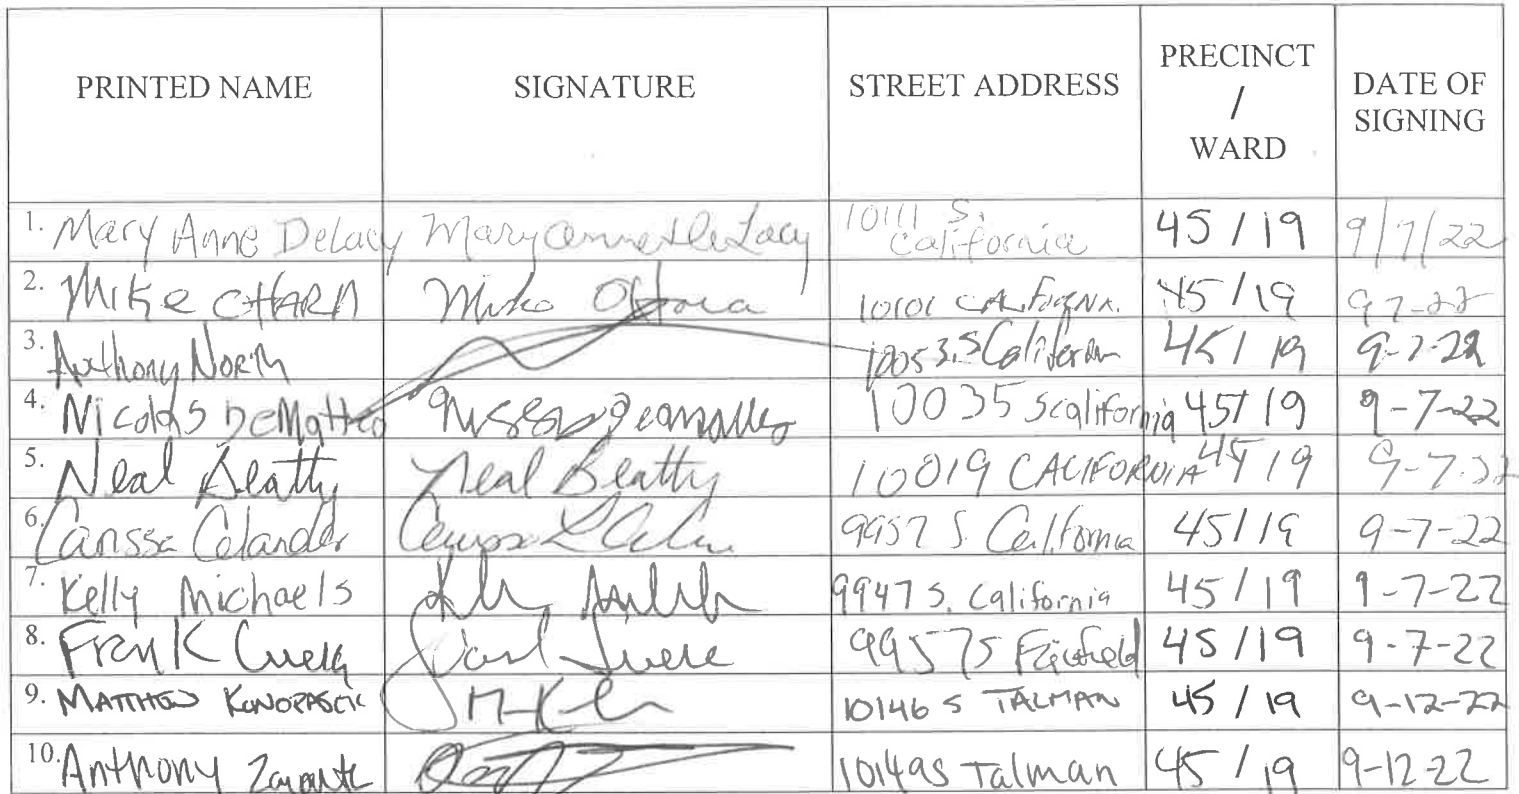 PRINTED NAME SIGNATURE STREET ADDRESS PRECINCT / WARD DATE OF SIGNING
1. Mary Anne Delacy Mary Anne DeLacy 10111 S. California 45 / 19 9/7/22
2. Mike OHARA Mike O'Hara 10101 CALIFORNIA. 45 / 19 9-7-22
3. Anthony North 10053 S California 45 / 19 9-7-22
4. Nicolas DeMatteo 10035 S California 45 / 19 9-7-22
5. Neal Beatty Neal Beatty 10019 CALIFORNIA 45 / 19 9-7-22
6. Carissa Celander 9957 S. California 45 / 19 9-7-22
7. Kelly Michaels 9947 S. California 45 / 19 9-7-22
8. Frank 9957 S Fairfield 45 / 19 9-7-22
9. MATTHEW 10146 S TALMAN 45 / 19 9-12-22
10. Anthony 10149 S Talman 45 / 19 9-12-22